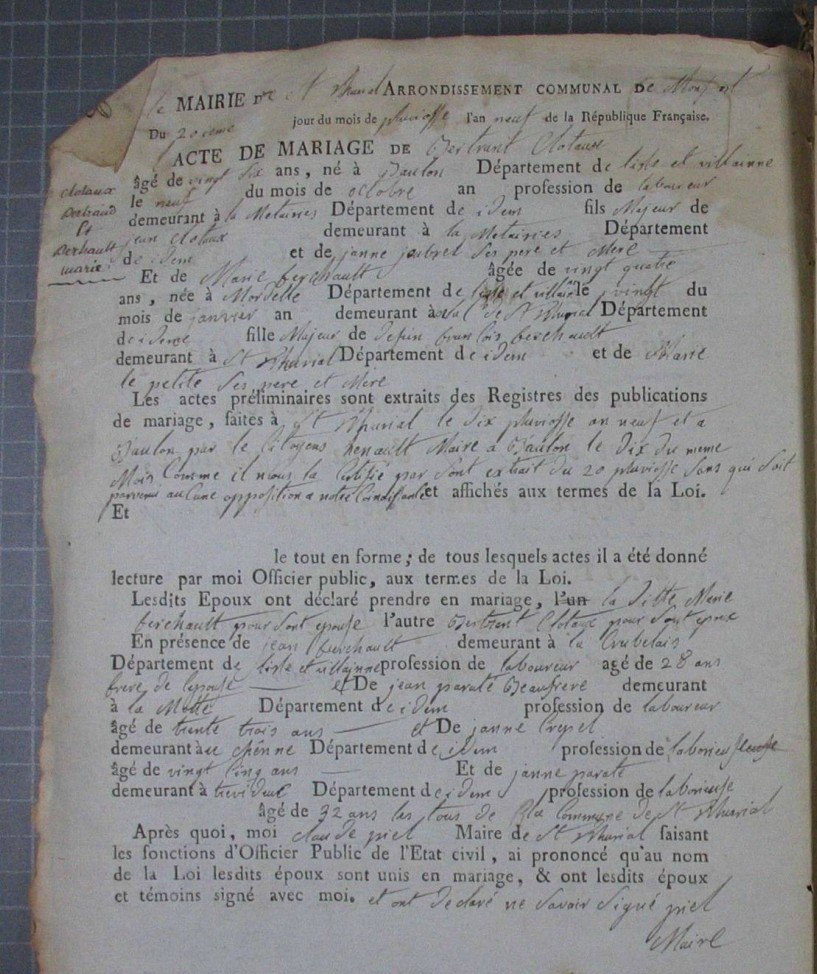 MAIRIE De St thurial ARRONDISSEMENT COMMUNAL DE Monfort
Du 20ieme jour du mois de pluviosse l'an neuf de la République Française.
ACTE DE MARIAGE DE Bertrant Clotaux
clotaux
Bertrand
Et
berhault
marie
âgé de vingt six ans, né à Baulon Département de lisle et villainne
le neuf du mois de octobre an profession de laboureur
demeurant à la Metairies Département de idem fils Majeur de
jean clotaux demeurant à la Metairies Département
de idem et de janne joubrel ses pere et Mere
Et de Marie berchault âgée de vingt quatre
ans, née à Mordelle Département de lisle et villaine le vingt du
mois de janvier an demeurant à val de St thurial Département
de ideme fille Majeur de defun francois berchault
demeurant à St thurial Département de idem et de Marie
le petite Ses pere et Mere
Les actes préliminaires sont extraits des Registres des publications
de mariage, faites à St thurial le dix pluviosse an neuf et a
Baulon par le Citoyens henault Maire a Baulon le Dix du meme
Mois Comme il nous la Certifie par sont extrait du 20 pluviosse Sans qui Soit
parvenu aucune opposition a notre et affichés aux termes de la Loi.
Et
le tout en forme; de tous lesquels actes il a été donné
lecture par moi Officier public, aux termes de la Loi.
Lesdits Epoux ont déclaré prendre en mariage, l'un la ditte Marie
berchault pour sont epouse l'autre Bertrant Clotaux pour sont epoux
En présence de jean berchault demeurant à la Crubelais
Département de lisle et villainne profession de laboureur agé de 28 ans
frere de lepouse et De jean paraté Beaufrere demeurant
à la Motte Département de idem profession de laboureur
âgé de trente trois ans et De janne Crespel
demeurant à au chenne Département de idem profession de laborieuse
âgé de vingt cinq ans Et de janne paraté
demeurant à trevideuc Département de idem profession de laborieuse
âgé de 32 ans les tous de la Commune de St thurial
Après quoi, moi claude priel Maire de St thurial faisant
les fonctions d'Officier Public de l'Etat civil, ai prononcé qu'au nom
de la Loi lesdits époux sont unis en mariage, & ont lesdits époux
et témoins signé avec moi. et ont Declaré ne Savoir Signé priel
Maire